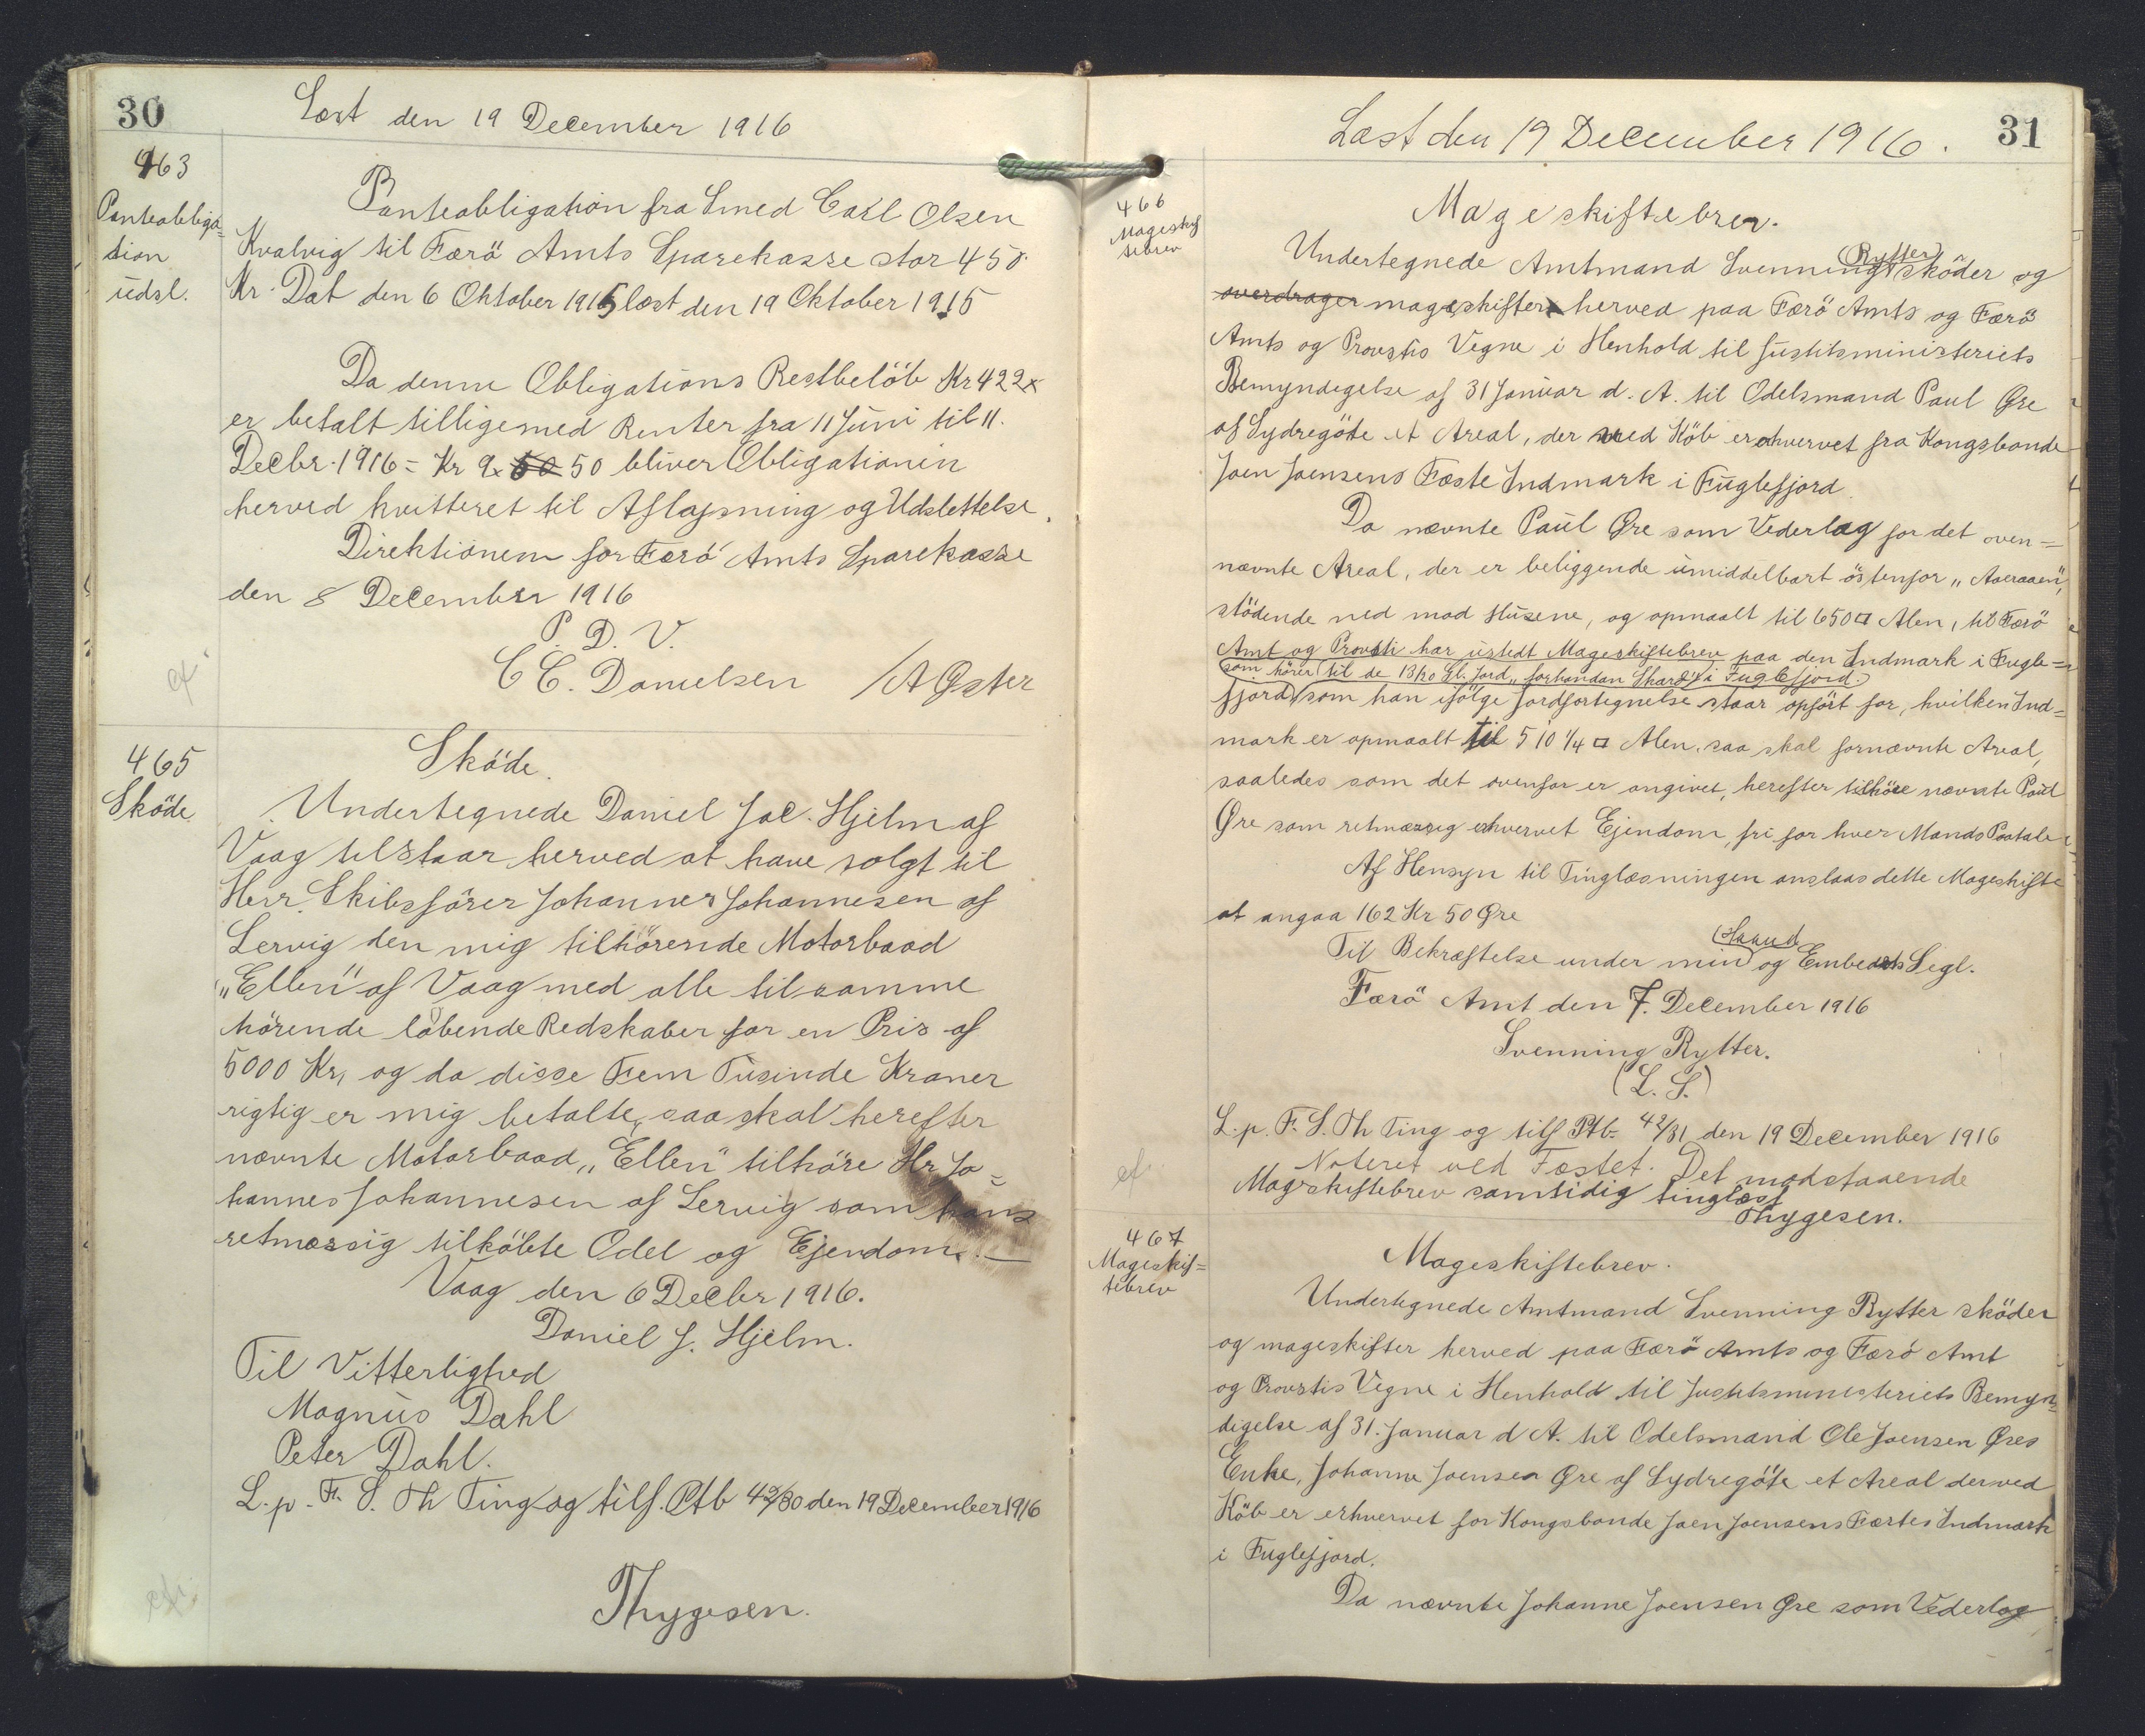 30
Læst den 19 December 1916
463
Panteobliga-
tion
udsl.
Panteobligation fra Smed Carl Olsen
Kvalvig til Færö Amts Sparekasse stor 450
Kr. Dat den 6 Oktober 1915 læst den 19 Oktober 1915
Da denne Obligations Restbelöb Kr 422
er betalt tilligemed Renter fra 11 Juni til 11.
Decbr. 1916 = Kr 9 50 50 bliver Obligationen
herved kvitteret til Aflæsning og Udslettelse.
Direktionen for Færö Amts Sparekasse
den 8 December 1916
P. D. V.
C C. Danielsen /A Øster
465
Sköde
Sköde.
Undertegnede Daniel Jac. Hjelm af
Vaag tilstaar herved at have solgt til
Herr. Skibsförer Johannes Johannesen af
Lervig den mig tilhörende Motorbaad
"Ellen" af Vaag med alle til samme
hörende löbende Redskaber for en Pris af
5000 Kr, og da disse Fem Tusinde Kroner
rigtig er mig betalte, saa skal herefter
nævnte Motorbaad "Ellen" tilhöre Hr Jo=
hannes Johannesen af Lervig som hans
retmæssig tilköbte Odel og Ejendom. —
Vaag den 6 Decbr 1916.
Daniel J. Hjelm.
Til Vitterlighed
Magnus Dahl
Peter Dahl.
L. p. F. S. Th Ting og tilf. Ptb 42/30 den 19 December 1916
Thygesen.
31
Læst den 19 December 1916.
466
Mageskif
tebrev
Mageskiftebrev.
Undertegnede Amtmand Svenning (Rytter) sköder og
overdrager mageskifter herved paa Færö Amts og Færö
Amts og Provstis Vegne i Henhold til Justitsministeriets
Bemyndigelse af 31 Januar d. A. til Odelsmand Paul Øre
af Sydregöte et Areal, der ved Köb er erhvervet fra Kongsbonde
Joen Joensens Fæste Indmark i Fuglefjord.
Da nævnte Paul Øre som Vederlag for det oven=
nævnte Areal, der er beliggende umiddelbart östenfor "Aaeraaen",
stödende ned mod Husene, og opmaalt til 650 □ Alen, til Færö
Amt og Provsti har ustedt Mageskiftebrev paa den Indmark i Fugle=
(som hörer til de 13/20 Gl. Jord "forhandan Skard" i Fuglefjord.)
fjord, som han ifölge Jordfortegnelse staar opfört for, hvilken Ind=
mark er opmaalt til 510 1/4 □ Alen, saa skal fornævnte Areal,
saaledes som det ovenfor er angivet, herefter tilhöre nævnte Paul
Øre som retmæssig erhvervet Ejendom, fri for hver Mands Paatale
Af Hensyn til Tinglæsningen anslaas dette Mageskifte
at angaa 162 Kr 50 Øre
Til Bekræftelse under min (Haand) og Embeds Segl.
Færö Amt den 7. December 1916
Svenning Rytter.
(L. S.)
L. p. F. S. Th Ting og tilf Ptb. 42/31 den 19 December 1916
Noteret ved Fæstet. Det modstaaende
Magskiftebrev samtidig tinglæst
Thygesen.
467
Mageskif=
tebrev
Mageskiftebrev.
Undertegnede Amtmand Svenning Rytter sköder
og mageskifter herved paa Færö Amts og Færö Amt
og Provstis Vegne i Henhold til Justitsministeriets Bemyn=
digelse af 31. Januar d A. til Odelsmand Ole Joensen Øres
Enke, Johanne Joensen Øre af Sydregöte et Areal der ved
Köb er erhvervet for Kongsbonde Joen Joensens Fæstes Indmark
i Fuglefjord.
Da nævnte Johanne Joensen Øre som Vederlag